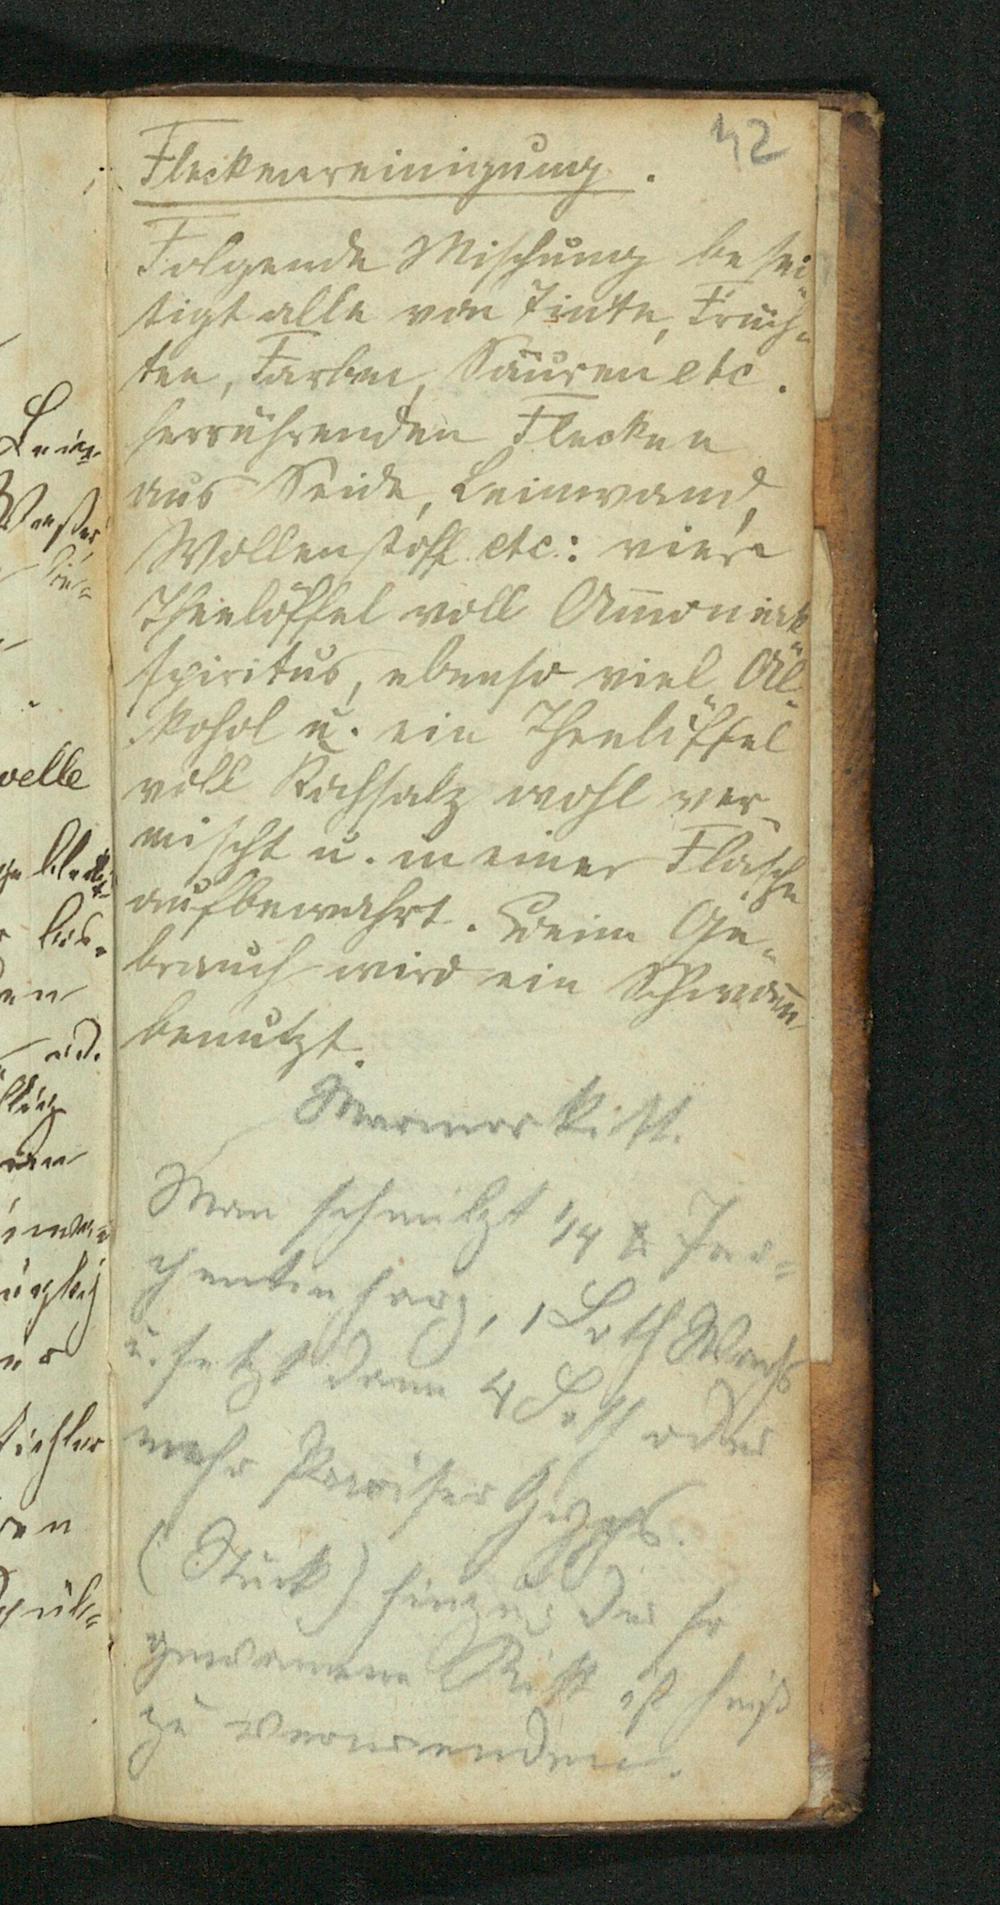 42
Fleckenreinigung.
Folgende Mischung besei-
tigt alle von Tinte, Früch-
ten, Farben, Säuren etc.
herrührenden Flecken
aus Seide, Leinwand,
Wollenstoff etc.: vier
Theelöffel voll Amoniak
spiritus, ebenso viel Al-
kohol u. ein Theelöffel
voll Kochsalz wohl ver-
mischt u. in einer Flasche
aufbewahrt. Beim Ge-
brauch wird ein Schwam
benutzt.
Marmorkitt.
Man schmilzt 1/4 ℔ Ter-
pentinharz, 1 Loth Wachs
u. setzt dann 4 Loth oder
mehr Pariser Gyps.
(Stuck) hinzu; der so
gewonnene Kitt ist heiß
zu verwenden.